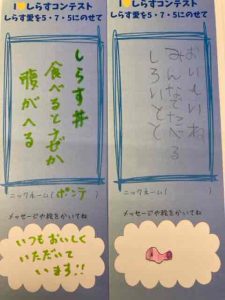 I しらすコンテスト
しらす愛を5・7・5にのせて
しらす丼
食べるとなぜか
腹がへる
ニックネーム( ポンテ )
メッセージや絵をかいてね
いつもおいしく
いただいて
います!!
I しらすコンテスト
しらす愛を5・7・5にのせて
おいしいね
みんなでたべる
しろいとと
ニックネーム( )
メッセージや絵をかいてね